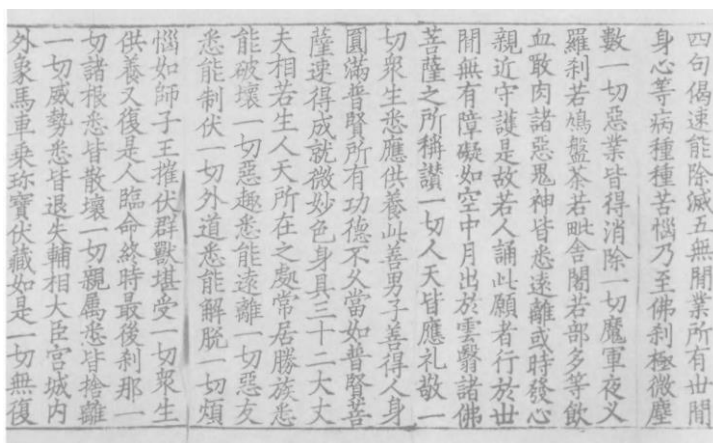 四句偈速能除滅五無間業所有世間
身心等病種種苦惱乃至佛刹極微塵
數一切惡業皆得消除一切魔軍夜叉
羅刹若鳩盤茶若毗舍闍若部多等飲
血噉肉諸惡鬼神皆悉遠離或時發心
親近守護是故若人誦此願者行於世
間無有障礙如空中月出於雲翳諸佛
菩薩之所稱讃一切人天皆應礼敬一
切衆生悉應供養此善男子善得人身
圓滿普賢所有功德不久當如普賢菩
薩速得成就微妙色身具三十二大丈
夫相若生人天所在之處常居勝族悉
能破壞一切惡趣悉能遠離一切惡友
悉能制伏一切外道悉能解脫一切煩
惱如師子王摧伏群獸堪受一切衆生
供養又復是人臨命終時最後刹那一
切諸根悉皆散壞一切親屬悉皆捨離
一切威勢悉皆退失輔相大臣宮城內
外象馬車乘珎寶伏藏如是一切無復